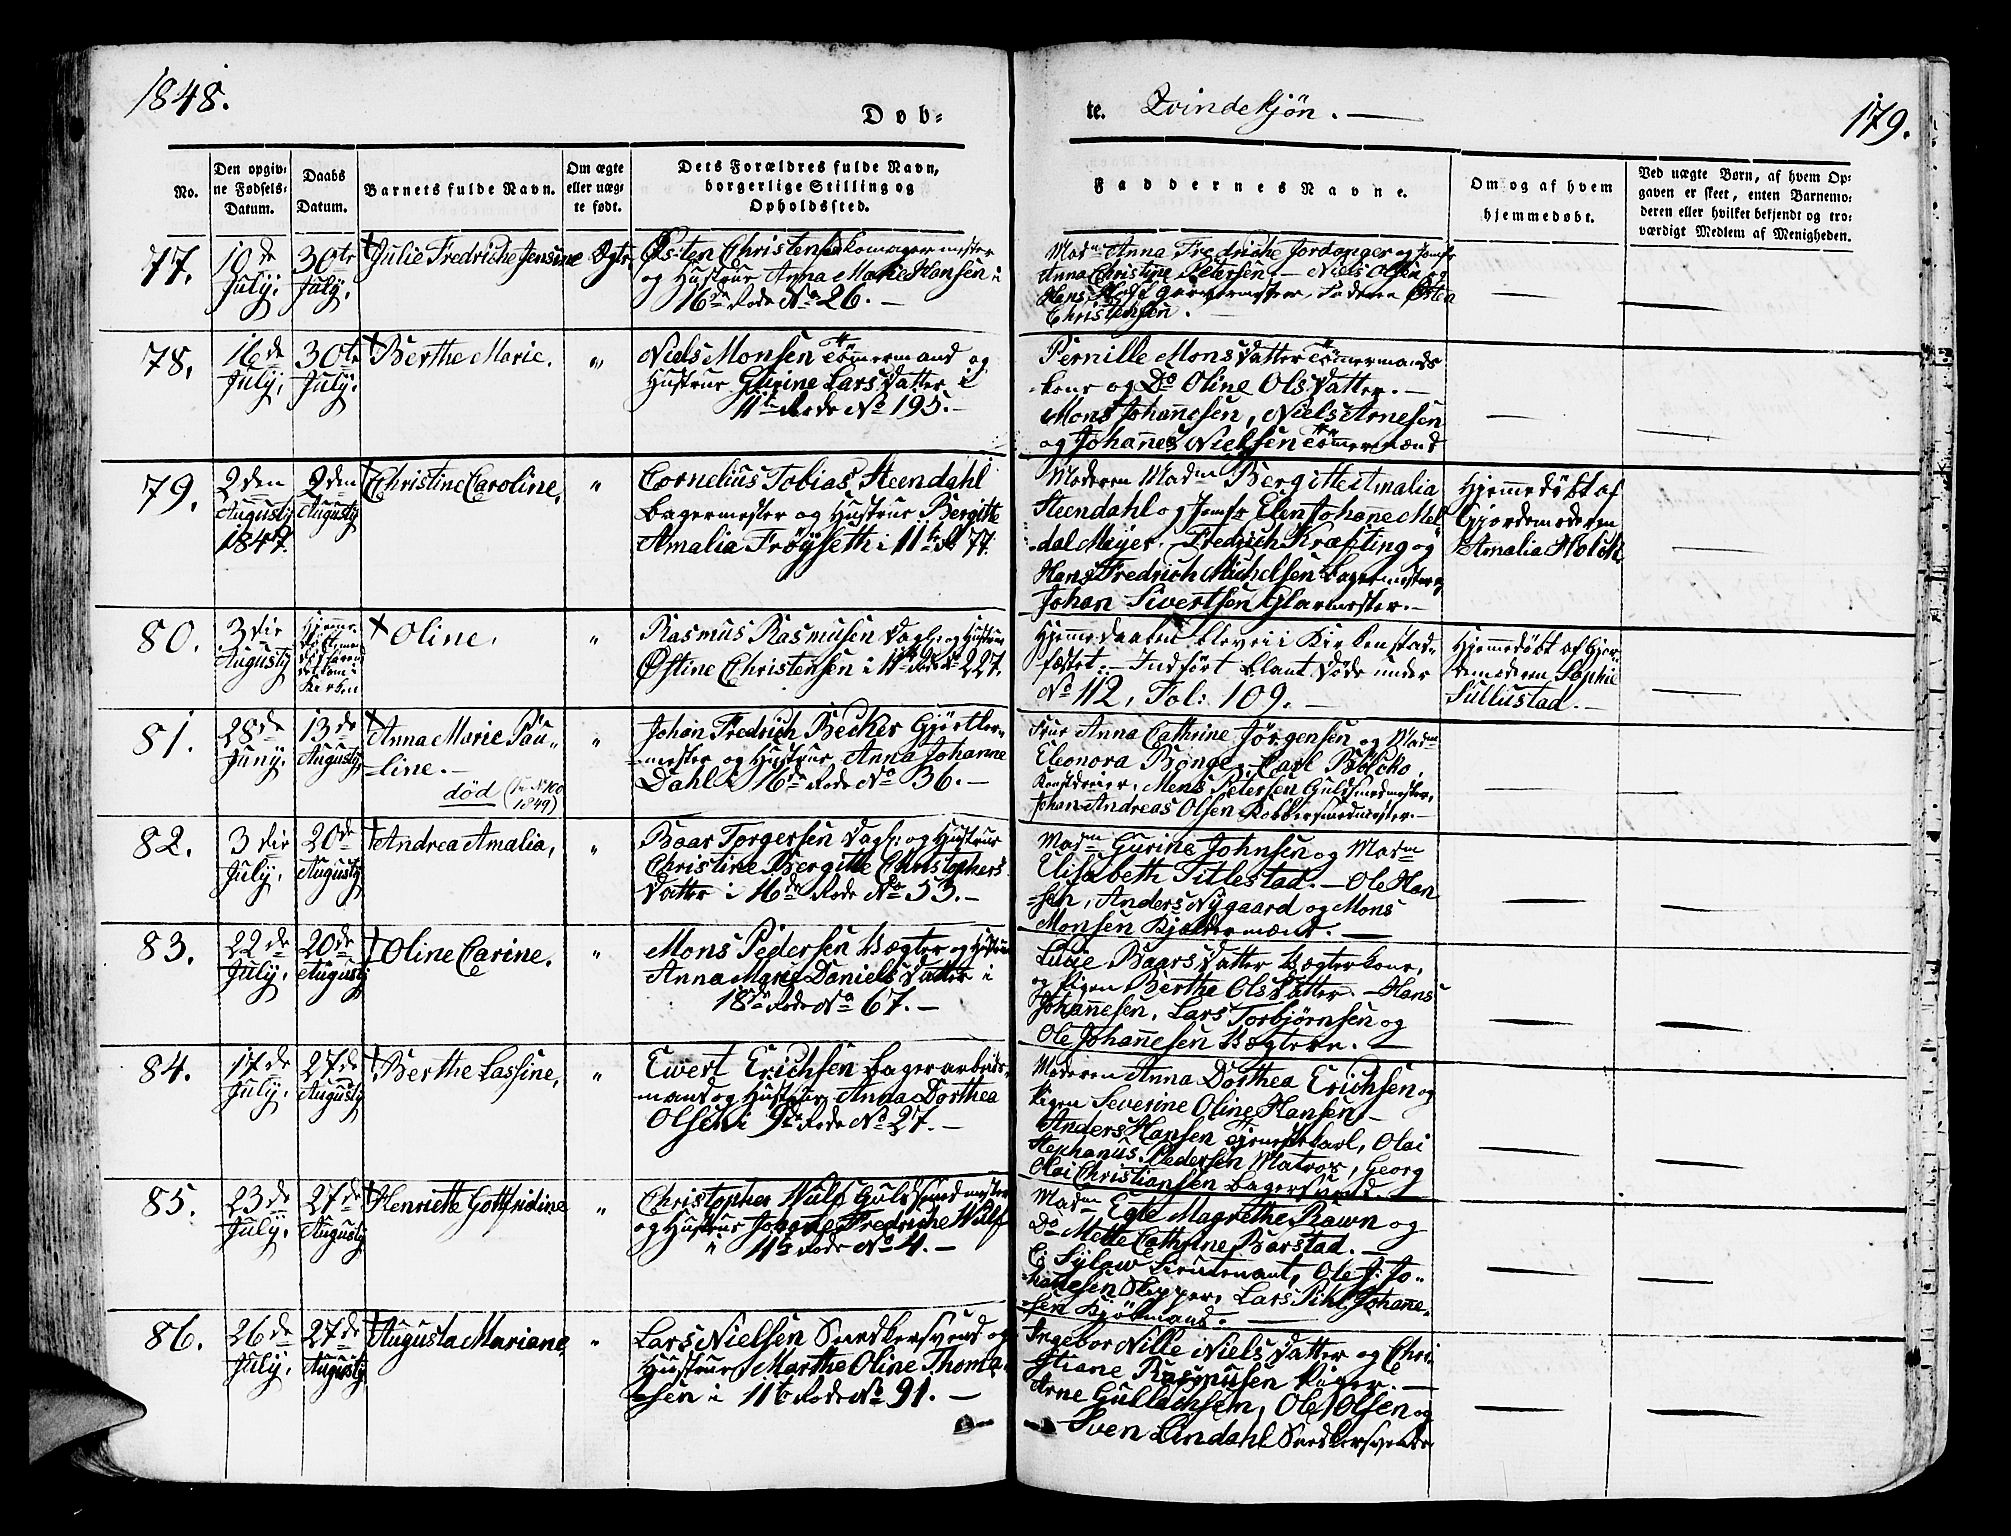 1848.
Døb-
te. Qvindekjøn. —
179.
No.
Den opgiv-
ne Fødsels-
Datum.
Daabs
Datum.
Barnets fulde Navn.
Om ægte
eller uæg-
te født.
Dets Forældres fulde Navn,
borgerlige Stilling og
Opholdssted.
Faddernes Navne.
Om og af hvem
hjemmedøbt.
Ved uægte Børn, af hvem Op-
gaven er skeet, enten Barnemo-
deren eller hvilket bekjendt og tro-
værdigt Medlem af Menigheden.
77.
10de
July.
30te
July.
Julie Fredriche Jensine
Ægte
Østen Christensen Skomagermester
og Hustrue Anna Marie Hansen i
16de Rode No 26. —
Madm Anna Fredriche Jordanger og Jomfr
Anna Christine Petersen — Niels Olsen og
Hans Holf Garvermestre, Faderen Østen
Christensen.
78.
16de
July.
30te
July.
Berthe Marie.
"
Niels Monsen Tömmermand og
Hustrue Gurine Larsdatter i
11te Rode No 195. —
Pernille Monsdatter Tömmermands
kone og Do Oline Olsdatter. —
Mons Johannesen, Niels Arnesen
og Johannes Nielsen Tömmermænd
79.
2den
Augusty
1847.
9den
Augusty
Christine Caroline.
"
Cornelius Tobias Steendahl
Bagermester og Hustrue Bergitte
Amalia Fröyseth i 11te R 77.
Moderen Madm Bergitte Amalia
Steendahl og Jomfr Elen Johane Mel-
dal Meyer. — Fredrich Kræfting og
Hans Fredrich Michelsen Bagermestere,
Johan Sivertsen Glarmester. —
Hjemmedöbt af
Gjordemoderen
Amalia Holck
80.
3die
Augusty
Hjemme-
Kirken
Oline.
"
Rasmus Rasmusen Dagl: og Hustrue
Östine Christensen i 11te Rode No 227.
Hjemmedaaben blev ei i Kirken stad-
fæstet. — Indført blant Døde under
No 112, Fol: 109. —
Hjemmedöbt af Gjor-
demoderen Sophie
Sullustad. —
81.
28de
Juny.
13de
Augusty
Anna Marie Pau-
line. —
död (No 100
1849)
"
Johan Fredrich Becker Gjörtler-
mester og Hustrue Anna Johanne
Dahl i 16de Rode No 36. —
Frue Anna Cathrine Jörgensen og Madm
Eleonora Bönge. — Carl Bölcho,
Kunstdreier, Mons Petersen Guldsmedmester,
Johan Andreas Olsen Kobbersmedmester. —
82.
3die
July.
20de
Augusty
Andrea Amalia,
"
Baar Torgersen Dagl: og Hustrue
Christine Bergitte Christophers
datter i 16de Rode No 53. —
Madm Gurine Johnsen og Madm
Elisabeth Titlestad. — Ole Han-
sen, Anders Nygaard og Mons
Monsen Kjeldermænd. —
83.
22de
July.
20de
Augusty
Oline Carine.
"
Mons Pedersen Vægter og Hustrue
Anna Marie Danielsdatter i
18de Rode No 67. —
Lucie Baarsdatter Vægterkone,
og Pigen Berthe Olsdatter. — Hans
Johannesen, Lars Torbjørnsen og
Ole Johannesen Vægtere. —
84.
17de
July.
27de
Augusty
Berthe Lassine,
"
Ewert Erichsen Bagerarbeids-
mand og Hustrue Anna Dorthea
Olsen i 9de Rode No 27. —
Moderen Anna Dorthea Erichsen og
Pigen Severine Oline Hansen. —
Anders Hansen Tjenestekarl, Olai
Stephanus Pedersen Matros, Georg
Olai Christiansen Bagersvend. —
85.
23de
July.
27de
Augusty
Henriette Gottfridine
"
Christopher Wulf Guldsmedmester
og Hustrue Johanne Fredriche Wulf
i 11te Rode No 4. —
Madm Egle Magrethe Rawn og
Do Mette Cathrine Barstad. —
C: Sylow Lieutenant, Ole J: Jo-
hannesen Skipper, Lars Pihl Johanne-
sen Kjöbmand. —
86.
26de
July.
27de
Augusty
Augusta Mariane,
"
Lars Nielsen Snedkersvend og
Hustrue Marthe Oline Thoma-
sen i 11te Rode No 91. —
Ingebor Nille Nielsdatter og Chri-
stiane Rasmusen Piger. —
Arne Gullachsen, Ole Olsen og
Sven Lindahl Snedkersvende